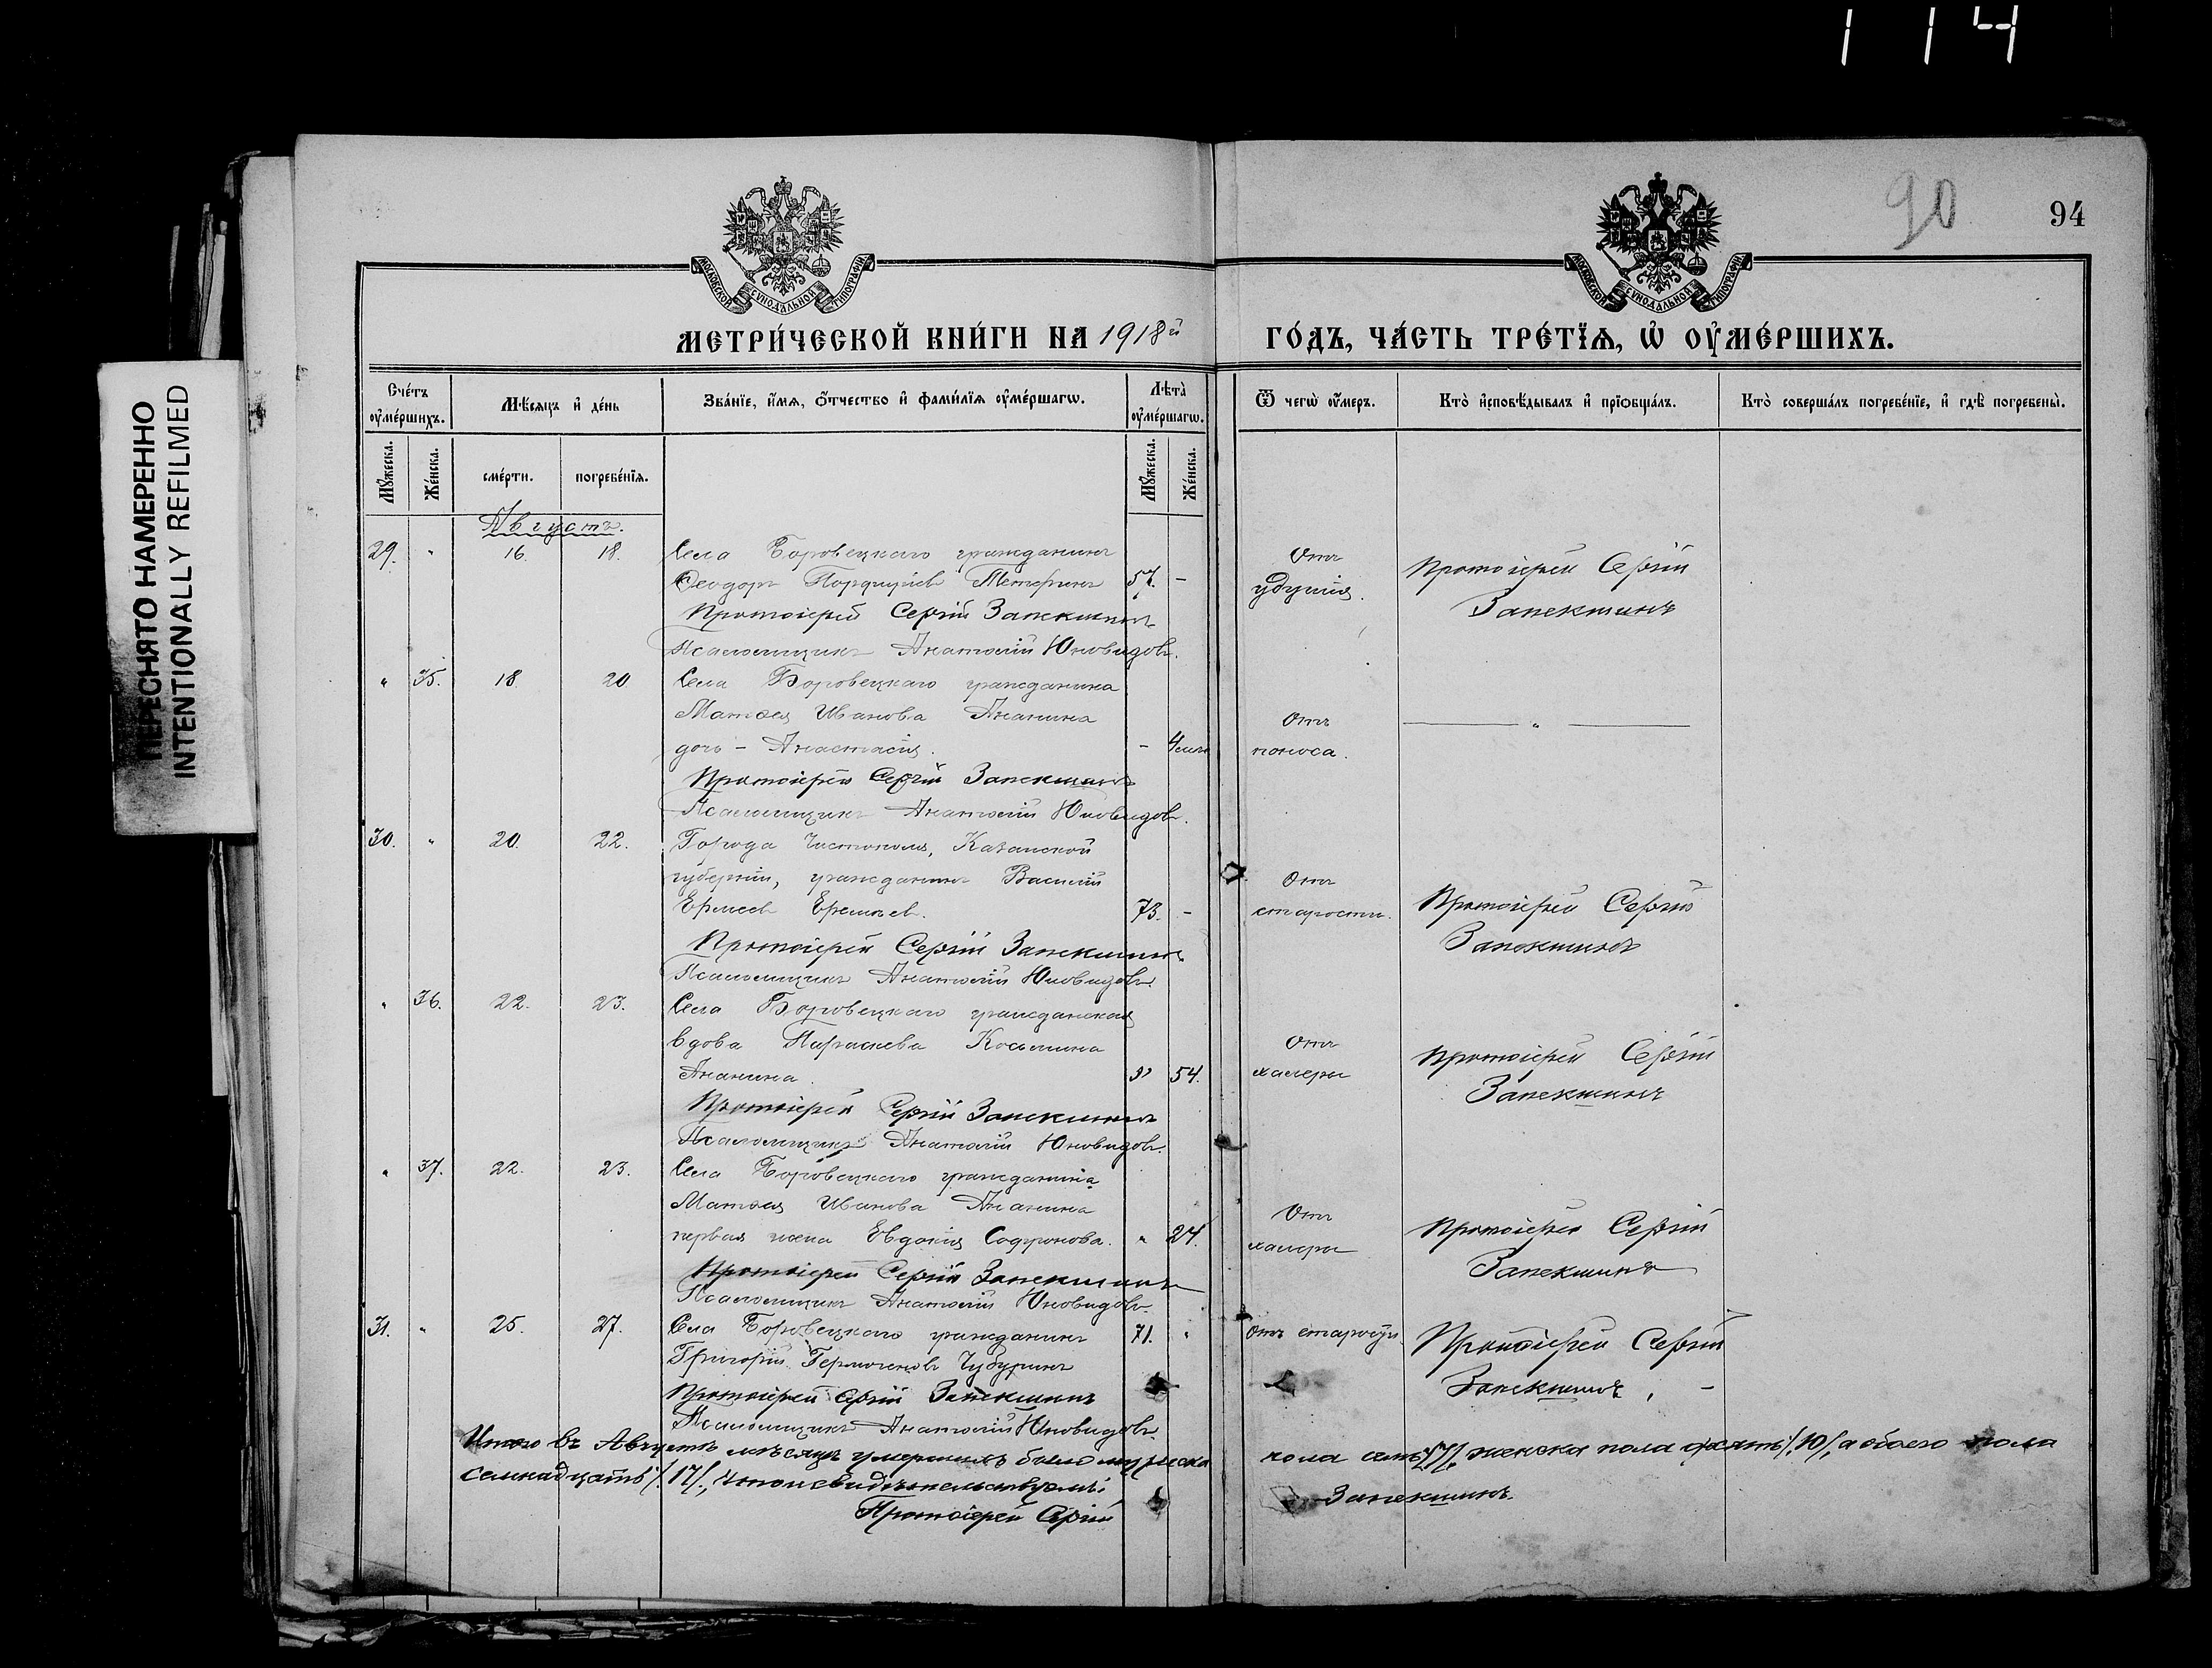 1 1 4
ПЕРЕСНЯТО НАМЕРЕННО
INTENTIONALLY REFILMED
90
94
МОСКОВСКОЙ СѴНОДАЛЬНОЙ ТИПОГРАФІИ
МОСКОВСКОЙ СѴНОДАЛЬНОЙ ТИПОГРАФІИ
МЕТРИ́ЧЕСКОЙ КНИ́ГИ НА 1918й
ГО́ДЪ, ЧА́СТЬ ТРЕ́ТЇѦ, Ѡ҆ ОУ҆МЕ́РШИХЪ.
Сче́тъ оу҆ме́ршихъ.
Мѣ́сѧцъ и҆ де́нь
Зва́нїе, и҆́мѧ, ѻ҆́тчество и҆ фами́лїѧ оу҆ме́ршагѡ.
Лѣ̀та оу҆ме́ршагѡ.
Ѿ чегѡ̀ оу҆́меръ.
Кто̀ и҆сповѣ́дывалъ и҆ прїѻбща́лъ.
Кто̀ соверша́лъ погребе́нїе, и҆ гдѣ̀ погребены̀.
Мꙋ́жеска.
Же́нска.
сме́рти.
погребе́нїѧ.
Мꙋ́жеска.
Же́нска.
Августъ.
29. " 16. 18. Села Боровецкаго гражданинъ
Ѳеодоръ Порфирiевъ Тетеринъ 57. -
Отъ удушiя.
Протоiерей Сергiй Запекшинъ
Протоiерей Сергiй Запекшинъ
Псаломщикъ Анатолiй Юновидовъ.
" 35. 18. 20 Села Боровецкаго гражданина
Матѳея Иванова Ананина
дочь - Анастасiя. -
Отъ поноса.
"
Протоiерей Сергiй Запекшинъ
Псаломщикъ Анатолiй Юновидовъ.
30. " 20. 22. Города Чистополя, Казанской
губернiи, гражданинъ Василiй
Ермеевъ Еремѣевъ. 73. -
Отъ старости.
Протоiерей Сергiй Запекшинъ
Протоiерей Сергiй Запекшинъ
Псаломщикъ Анатолiй Юновидовъ.
" 36. 22. 23. Села Боровецкаго гражданская
вдова Параскева Косьмина
Ананина. " 54.
Отъ холеры
Протоiерей Сергiй Запекшинъ
Протоiерей Сергiй Запекшинъ
Псаломщикъ Анатолiй Юновидовъ.
" 37. 22. 23. Села Боровецкаго гражданина
Матѳея Иванова Ананина
первая жена Евдокiя Софронова. " 24.
Отъ холеры
Протоiерей Сергiй Запекшинъ
Протоiерей Сергiй Запекшинъ
Псаломщикъ Анатолiй Юновидовъ.
31. " 25. 27. Села Боровецкаго гражданинъ 71. "
Григорiй Гермогеновъ Чубуринъ
Отъ старости.
Протоiерей Сергiй Запекшинъ
Протоiерей Сергiй Запекшинъ
Псаломщикъ Анатолiй Юновидовъ.
Итого въ Августѣ мѣсяцѣ умершихъ было мужеска пола семь /7/, женска пола десять /10/, а обоего пола
семнадцать /17/, въ томъ свидѣтельствуемъ:
Протоiерей Сергiй Запекшинъ.